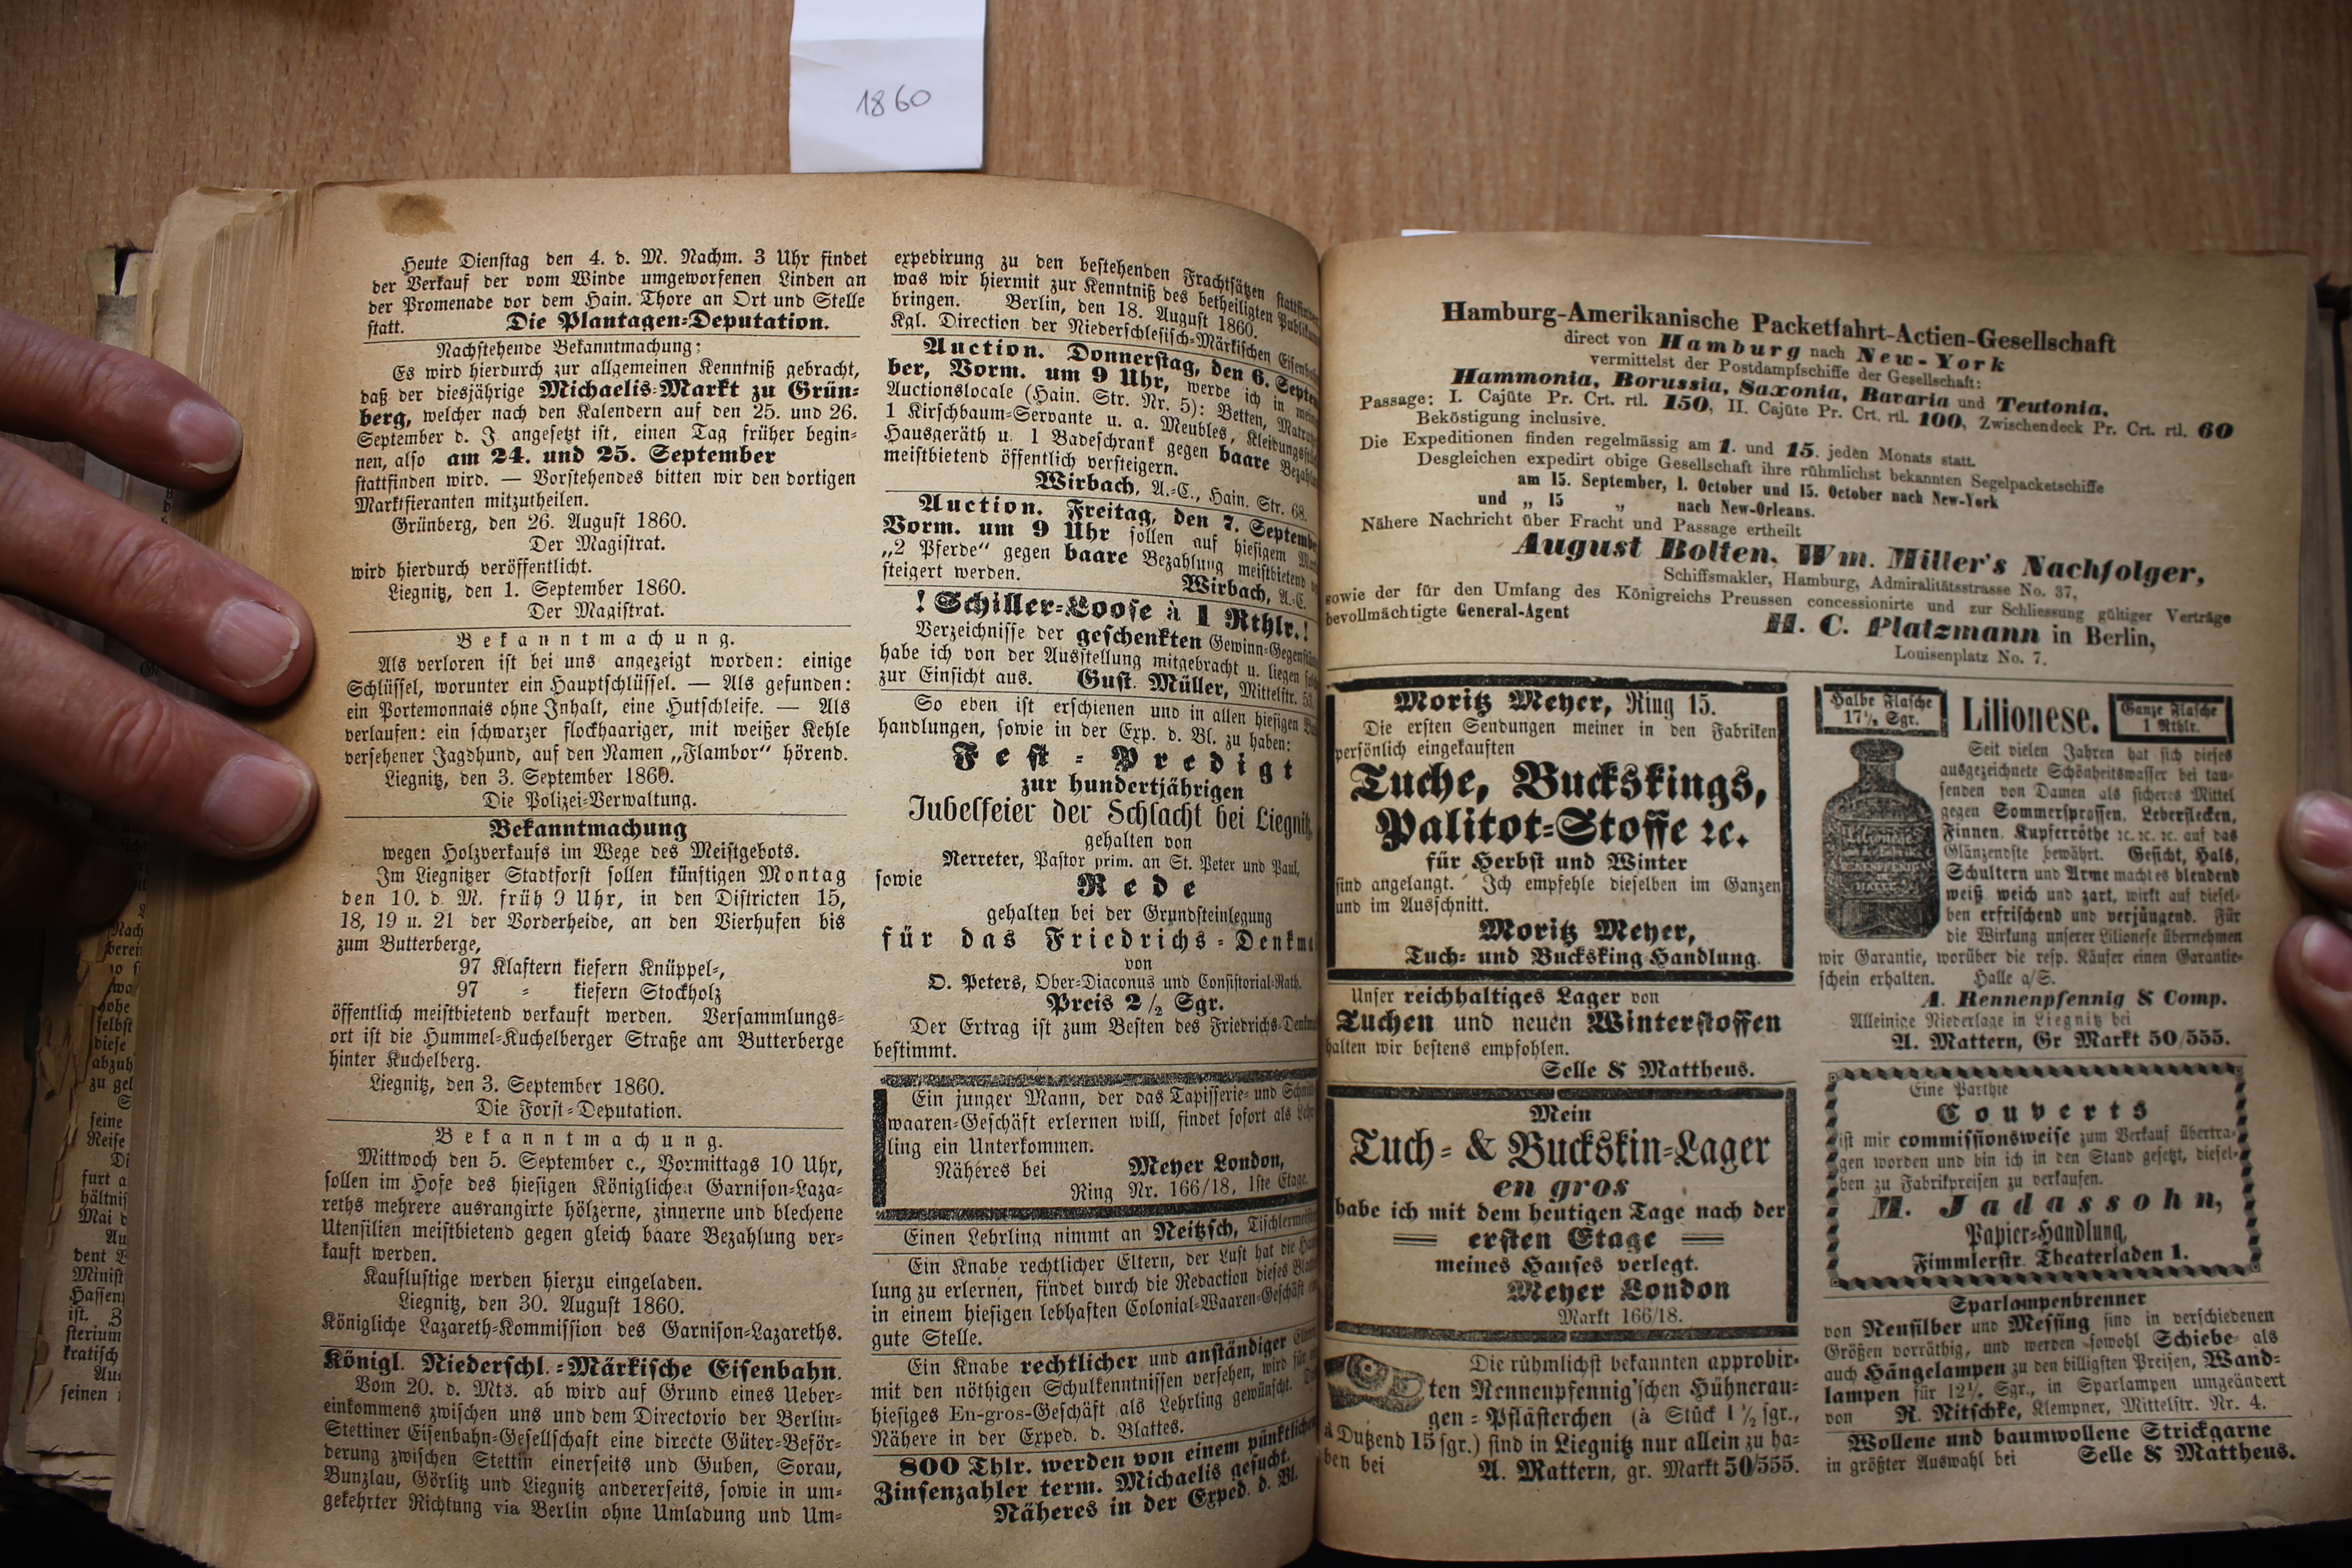 1860
Heute Dienstag den 4. d. M. Nachm. 3 Uhr findet
der Verkauf der vom Winde umgeworfenen Linden an
der Promenade vor dem Hain. Thore an Ort und Stelle
statt. Die Plantagen=Deputation.
Nachstehende Bekanntmachung:
Es wird hierdurch zur allgemeinen Kenntniß gebracht,
daß der diesjährige Michaelis=Markt zu Grün=
berg, welcher nach den Kalendern auf den 25. und 26.
September d. J. angesetzt ist, einen Tag früher begin=
nen, also am 24. und 25. September
stattfinden wird. — Vorstehendes bitten wir den dortigen
Marktfieranten mitzutheilen.
Grünberg, den 26. August 1860.
Der Magistrat.
wird hierdurch veröffentlicht.
Liegnitz, den 1. September 1860.
Der Magistrat.
Bekanntmachung.
Als verloren ist bei uns angezeigt worden: einige
Schlüssel, worunter ein Hauptschlüssel. — Als gefunden:
ein Portemonnais ohne Inhalt, eine Hutschleife. — Als
verlaufen: ein schwarzer flockhaariger, mit weißer Kehle
versehener Jagdhund, auf den Namen „Flambor“ hörend.
Liegnitz, den 3. September 1860.
Die Polizei=Verwaltung.
Bekanntmachung
wegen Holzverkaufs im Wege des Meistgebots.
Im Liegnitzer Stadtforst sollen künftigen Montag
den 10. d. M. früh 9 Uhr, in den Districten 15,
18, 19 u. 21 der Vorderheide, an den Vierhufen bis
zum Butterberge,
97 Klaftern kiefern Knüppel=,
97 = kiefern Stockholz
öffentlich meistbietend verkauft werden. Versammlungs=
ort ist die Hummel=Kuchelberger Straße am Butterberge
hinter Kuchelberg.
Liegnitz, den 3. September 1860.
Die Forst=Deputation.
Bekanntmachung.
Mittwoch den 5. September c., Vormittags 10 Uhr,
sollen im Hofe des hiesigen Königlichen Garnison=Laza=
reths mehrere ausrangirte hölzerne, zinnerne und blecherne
Utensilien meistbietend gegen gleich baare Bezahlung ver=
kauft werden.
Kauflustige werden hierzu eingeladen.
Liegnitz, den 30. August 1860.
Königliche Lazareth=Kommission des Garnison=Lazareths.
Königl. Niederschl.=Märkische Eisenbahn.
Vom 20. d. Mts. ab wird auf Grund eines Ueber=
einkommens zwischen uns und dem Directorio der Berlin=
Stettiner Eisenbahn=Gesellschaft eine directe Güter=Beför=
derung zwischen Stettin einerseits und Guben, Sorau,
Bunzlau, Görlitz und Liegnitz andererseits, sowie in um=
gekehrter Richtung via Berlin ohne Umladung und Um=
expedirung zu den bestehenden Frachtsätzen
was wir hiermit zur Kenntniß des betheiligten
bringen. Berlin, den 18. August 1860.
Kgl. Direction der Niederschlesisch=Märkischen
Auction. Donnerstag, den 6. Septem
ber, Vorm. um 9 Uhr, werde ich in
Auctionslocale (Hain. Str. Nr. 5): Betten,
1 Kirschbaum=Servante u. a. Meubles,
Hausgeräth u. 1 Badeschrank gegen baare
meistbietend öffentlich versteigern.
Wirbach, A.=C., Hain. Str. 68.
Auction. Freitag, den 7. Septembe
Vorm. um 9 Uhr sollen auf hiesigem
„2 Pferde“ gegen baare Bezahlung meistbietend
steigert werden. Wirbach, A.=C.
! Schiller=Loose à 1 Rthlr.!
Verzeichnisse der geschenkten
habe ich von der Ausstellung mitgebracht u. liegen
zur Einsicht aus. Gust. Müller, Mittelstr.
So eben ist erschienen und in allen hiesigen
handlungen, sowie in der Exp. d. Bl. zu haben:
Fest=Predigt
zur hundertjährigen
Jubelfeier der Schlacht bei Liegnitz
gehalten von
Nerreter, Pastor prim. an St. Peter und Paul,
sowie Rede
gehalten bei der Grundsteinlegung
für das Friedrichs=
von
O. Peters, Ober=Diaconus und Consistorial=Rath.
Preis 2 1/2 Sgr.
Der Ertrag ist zum Besten des
bestimmt.
Ein junger Mann, der das Tapisserie= und
waaren=Geschäft erlernen will, findet sofort als
ling ein Unterkommen.
Näheres bei Meyer London,
Ring Nr. 166/18, 1ste Etage.
Einen Lehrling nimmt an Neitzsch,
Ein Knabe rechtlicher Eltern, der Lust hat die
lung zu erlernen, findet durch die Redaction dieses
in einem hiesigen lebhaften Colonial=Waaren=Geschäft
gute Stelle.
Ein Knabe rechtlicher und anständiger
mit den nöthigen Schulkenntnissen versehen, wird für
hiesiges En-gros-Geschäft als Lehrling gewünscht.
Nähere in der Exped. d. Blattes.
800 Thlr. werden von einem pünktlichen
Zinsenzahler term. Michaelis gesucht.
Näheres in der Exped. d. Bl.
Hamburg-Amerikanische Packetfahrt-Actien-Gesellschaft
direct von Hamburg nach New-York
vermittelst der Postdampfschiffe der Gesellschaft:
Hammonia, Borussia, Saxonia, Bavaria und Teutonia.
Passage: I. Cajüte Pr. Crt. rtl. 150, II. Cajüte Pr. Crt. rtl. 100, Zwischendeck Pr. Crt. rtl. 60
Beköstigung inclusive.
Die Expeditionen finden regelmässig am 1. und 15. jeden Monats statt.
Desgleichen expedirt obige Gesellschaft ihre rühmlichst bekannten Segelpacketschiffe
am 15. September, 1. October und 15. October nach New-York
und „ 15 „ nach New-Orleans.
Nähere Nachricht über Fracht und Passage ertheilt
August Bolten, Wm. Miller's Nachfolger,
Schiffsmakler, Hamburg, Admiralitätsstrasse No. 37,
sowie der für den Umfang des Königreichs Preussen concessionirte und zur Schliessung gültiger Verträge
bevollmächtigte General-Agent H. C. Platzmann in Berlin,
Louisenplatz No. 7.
Moritz Meyer, Ring 15.
Die ersten Sendungen meiner in den Fabriken
persönlich eingekauften
Tuche, Buckskings,
Palitot=Stoffe ꝛc.
für Herbst und Winter
sind angelangt. Ich empfehle dieselben im Ganzen
und im Ausschnitt.
Moritz Meyer,
Tuch= und Bucksking=Handlung.
Unser reichhaltiges Lager von
Tuchen und neuen Winterstoffen
halten wir bestens empfohlen.
Selle & Mattheus.
Mein
Tuch= & Buckskin=Lager
en gros
habe ich mit dem heutigen Tage nach der
ersten Etage
meines Hauses verlegt.
Meyer London
Markt 166/18.
Die rühmlichst bekannten approbir=
ten Rennenpfennig'schen Hühnerau=
gen=Pflästerchen (à Stück 1 1/2 sgr.,
à Dutzend 15 sgr.) sind in Liegnitz nur allein zu ha=
ben bei A. Mattern, gr. Markt 50/555.
Halbe Flasche
17 1/2 Sgr.
Lilionese.
Ganze Flasche
1 Rthlr.
Seit vielen Jahren hat sich dieses
ausgezeichnete Schönheitswasser bei tau=
senden von Damen als sicheres Mittel
gegen Sommersprossen, Leberflecken,
Finnen, Kupferröthe ꝛc. ꝛc. ꝛc. auf das
Glänzendste bewährt. Gesicht, Hals,
Schultern und Arme macht es blendend
weiß weich und zart, wirkt auf diesel=
ben erfrischend und verjüngend. Für
die Wirkung unserer Lilionese übernehmen
wir Garantie, worüber die resp. Käufer einen Garantie=
schein erhalten. Halle a/S.
A. Rennenpfennig & Comp.
Alleinige Niederlage in Liegnitz bei
A. Mattern, Gr Markt 50/555.
Eine Parthie
Couverts
ist mir commissionsweise zum Verkauf übertra=
gen worden und bin ich in den Stand gesetzt, diesel=
ben zu Fabrikpreisen zu verkaufen.
M. Jadassohn,
Papier=Handlung,
Fimmlerstr. Theaterladen 1.
Sparlampenbrenner
von Neusilber und Messing sind in verschiedenen
Größen vorräthig, und werden sowohl Schiebe= als
auch Hängelampen zu den billigsten Preisen, Wand=
lampen für 12 1/2 Sgr., in Sparlampen umgeändert
von R. Nitschke, Klempner, Mittelstr. Nr. 4.
Wollene und baumwollene Strickgarne
in größter Auswahl bei Selle & Mattheus.